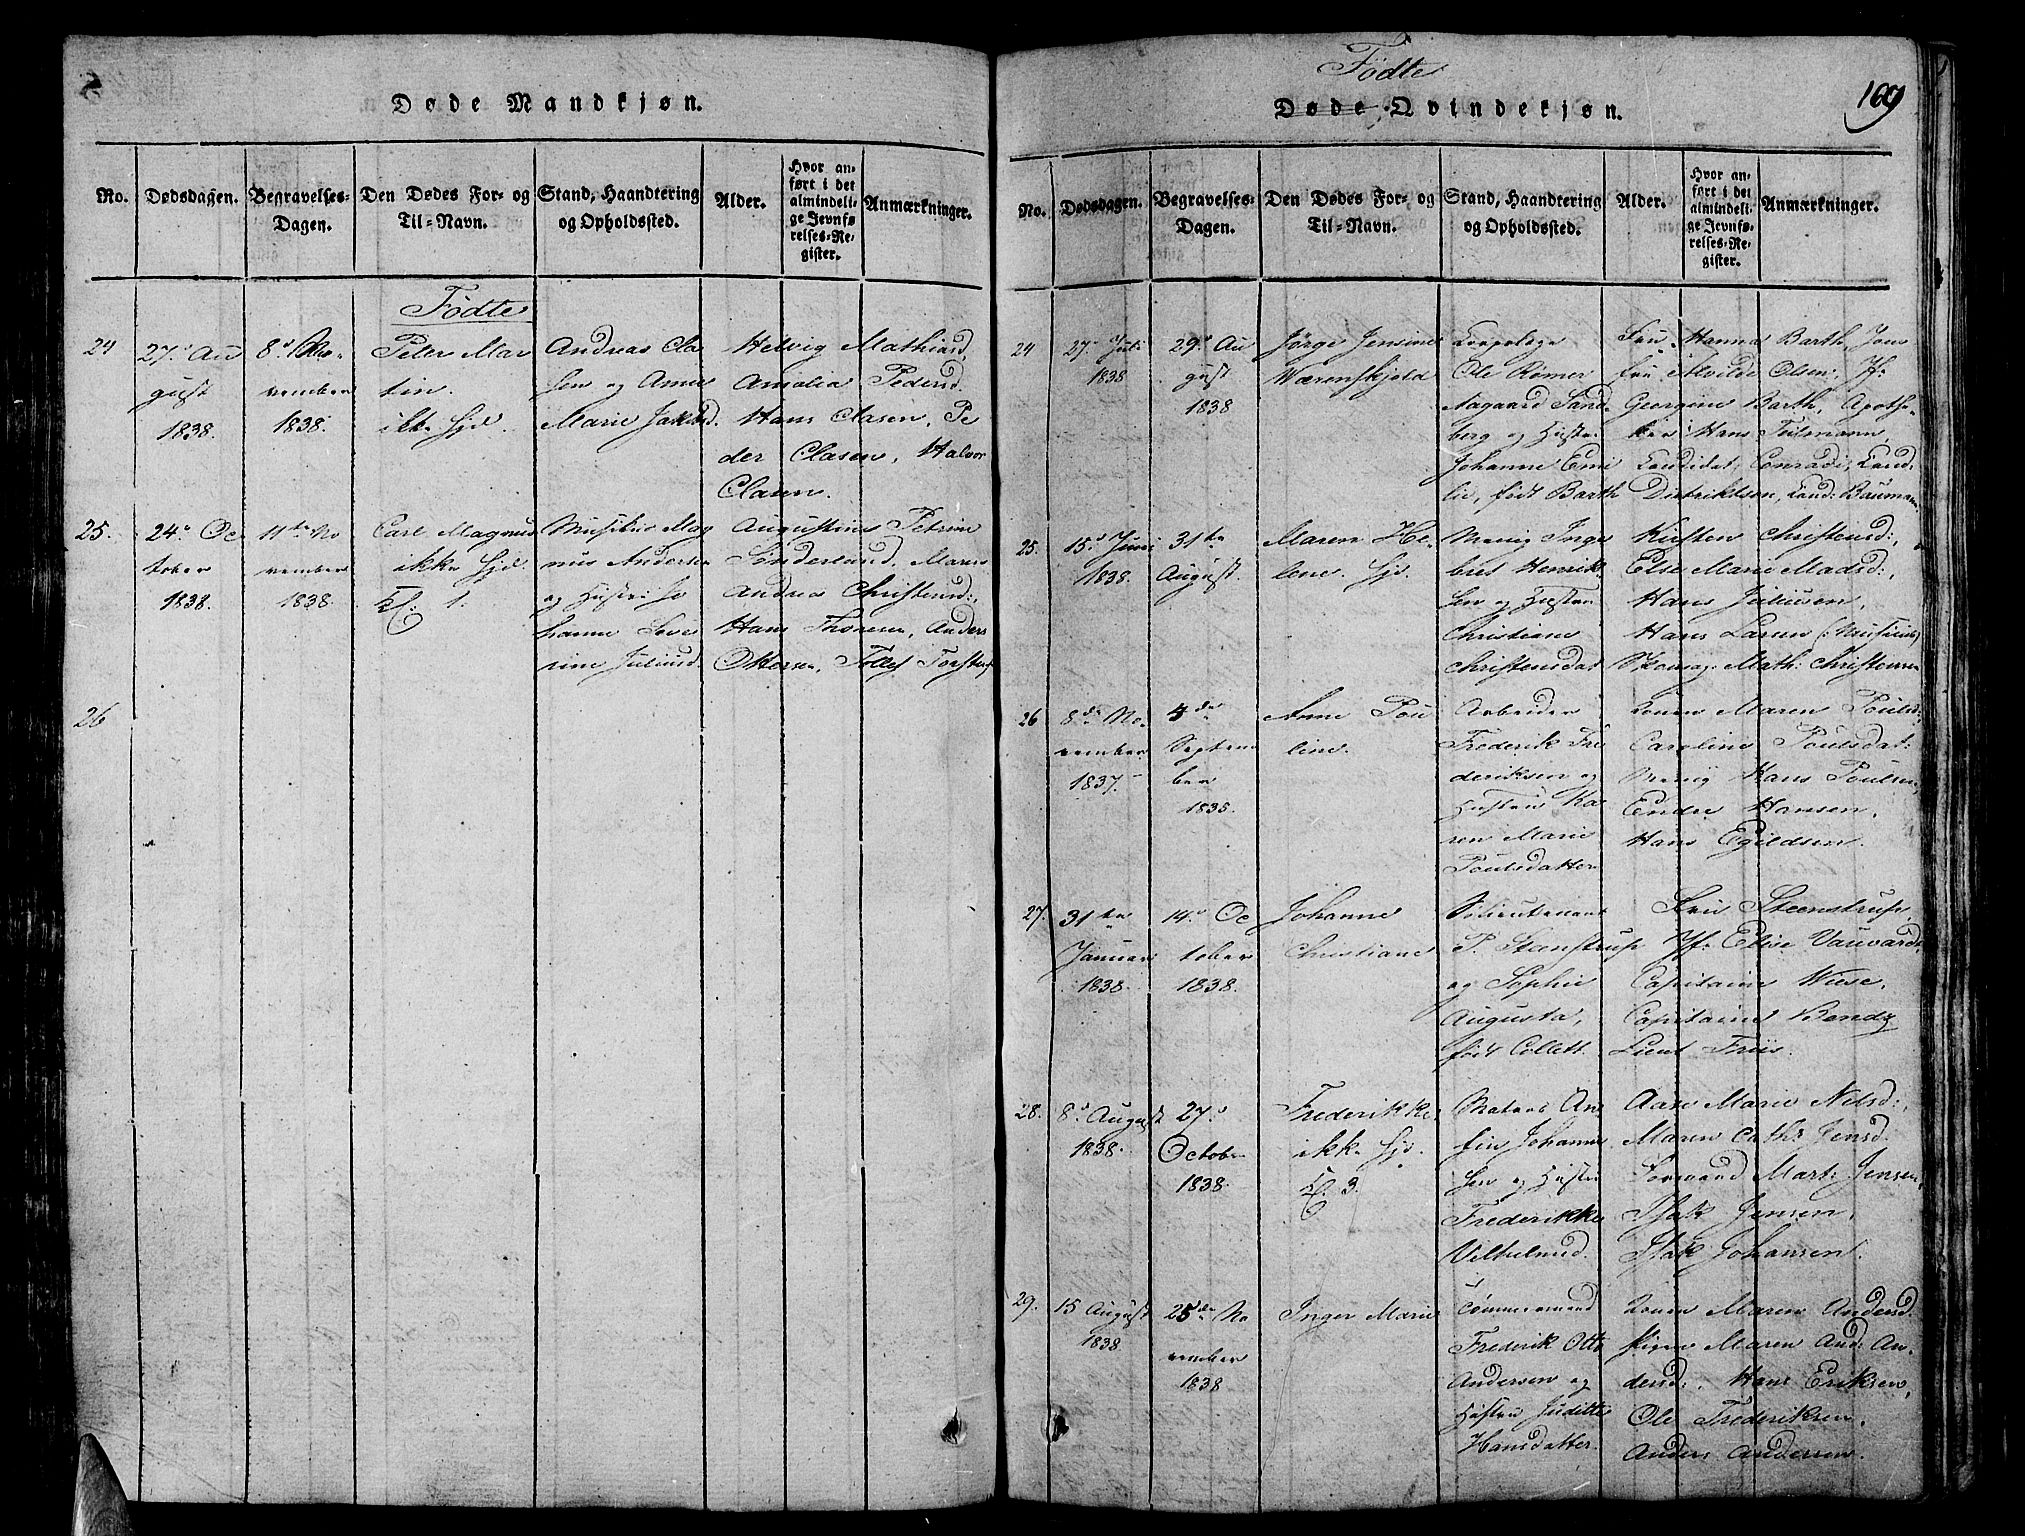 Døde Mandkjøn.
No.
Dødsdagen.
Begravelses-
Dagen.
Den Dødes For- og
Til-Navn.
Stand, Haandtering
og Opholdssted.
Alder.
Hvor an-
ført i det
almindeli-
ge Jevnfø-
relses-Re-
gister.
Anmærkninger.
Fødte
24
27de Au
gust
1838.
8de No-
vember
1838.
Peter Mar
tin.
ikke Hjd.
Andreas Cla
sen og Anne
Marie Jakobsd.
Helvig Mathiasd,
Amalia Pedersd.
Hans Clasen, Pe
der Clasen, Halvor
Clasen.
25.
24de Oc
tober
1838.
11te No
vember
1838.
Carl Magnus
ikke Hjd.
Kl. 1.
Musikus Mag
nus Andersen
og Hustru Jo
hanne Seve
rine Juliusd.
Augustine Petrine
Sinderland, Maren
Andrea Christensd:,
Hans Thoresen, Anders
Ottersen, Tollef Torstens.
26
Fødte
169
Døde Qvindekjøn.
No.
Dødsdagen.
Begravelses-
Dagen.
Den Dødes For- og
Til-Navn.
Stand, Haandtering
og Opholdssted.
Alder.
Hvor an-
ført i det
almindeli-
ge Jevnfø-
relses-Re-
gister.
Anmærkninger.
24
27. Juli
1838
29de Au
gust
1838
Jørge Jensine
Wærenskjold
Corpslæge
Ole Rømer
Aagaard Sand-
berg og Hustru
Johanne Emi
lie, født Barth
Fru Hanna Barth, Jom
fru Alvilde Olsen, Jf:
Georgine Barth, Apothe-
ker Hans Teilmann,
Kandidat Conradi, Cand:
Distriktsen, Cand: Baumann
25.
15de Juni
1838.
31te
August.
Maren He-
lene. Hjd.
Menig Inge
bret Henrik-
sen og Hustru
Christiane
Christensdat
Kirsten Christensd:,
Else Marie Madsd:,
Hans Juliusen,
Hans Larsen (: Musicus)
Skomag: Math: Christensen
26
8de No-
vember
1837.
4de
Septem
ber
1838.
Anne Pou
line.
Arbeider
Frederik Fre
deriksen og
Hustru Ka
ren Marie
Poulsdatter
Konen Maren Poulsd:,
Caroline Poulsdat:
Menig Hans Poulsen,
Endre Hansen,
Hans Egildsen.
27.
31te
Januar
1838.
14de Oc
tober
1838.
Johanne
Christiane
P. Steenstrup
og Sophie
Augusta,
født Collett.
Fru Steenstrup,
Jf: Elise
Capitaine Wiese,
Capitaine Bendz
Lieut Friis.
28.
8de August
1838.
27de
October
1838.
Frederikke
ikke Hjd.
Kl. 3.
Matros An
fin Johanne
sen og Hustru
Frederikke
Aase Marie Nilsd:,
Maren Cath: Jensd.
Formand Mart: Jensen,
Isak Jensen,
Isak Johansen.
29.
15 August
1838.
25de No
vember
1838
Inger Marie
Tømmermand
Frederik Otto
Andersen og
Hustru Juditte
Hansdatter.
Konen Maren Andersd.
Pigen Maren And: An-
dersd:, Hans Eriksen,
Ole Frederiksen.
Anders Andersen.